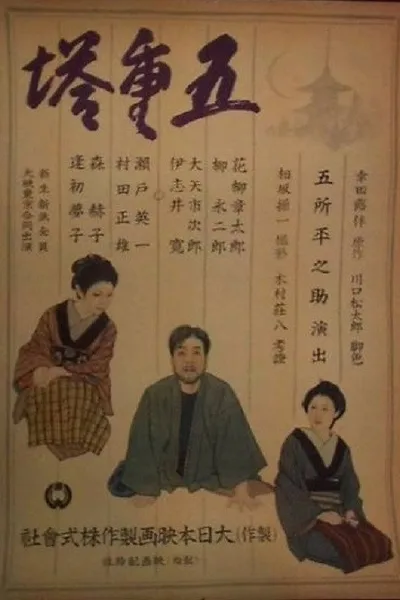 五重塔
幸田露伴 原作 川口松太郎 脚色
五所平之助 演出
相坂操一 撮影 木村荘八 考證
花柳章太郎
柳永二郎
大矢市次郎
伊志井寛
瀬戸英一
村田正雄
森赫子
逢初夢子
新生新派全員
大映東京合同出演
(製作)大日本映画製作株式會社
(配給)映画配給社